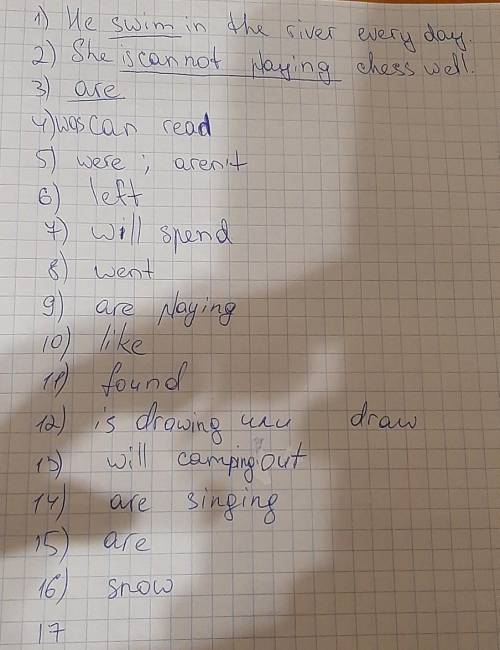 1) He swim in the river every day.
2) She iscannot playing chess well.
3) are
4) was can read
5) were ; aren't
6) left
7) will spend
8) went
9) are playing
10) like
11) found
12) is drawing или draw
13) will camping out
14) are singing
15) are
16) snow
17